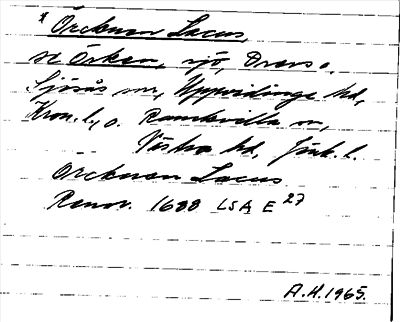 * Örcknen Lacus,
se Örken, sjö, Drevs o.
Sjösås snr, Uppvidinge hd,
Kron. l., o. Ramkvilla sn,
Västra hd, Jönk. l.
Örcknen Lacus
Renov. 1688 LSA E 27
A.H. 1965.